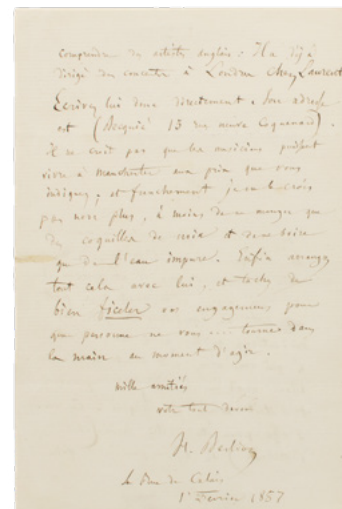 comprendre des artistes anglais : Il a déjà
dirigé des concerts à Londres chez Laurent
Ecrivez lui donc directement. Son adresse
est (Becquié 13 rue neuve Coquenard).
il ne croit pas que les musiciens puissent
vivre à Manchester au prix que vous
indiquez ; et franchement je ne le crois
pas non plus, à moins de ne manger que
des coquilles de noix et de ne boire
que de l'eau impure. Enfin arrangez
tout cela avec lui, et tachez de
bien ficeler vos engagemens pour
que personne ne vous .... tourne dans
la main au moment d'agir.
mille amitiés
votre tout dévoué
H. Berlioz
4 rue de Calais
1er Fevrier 1857